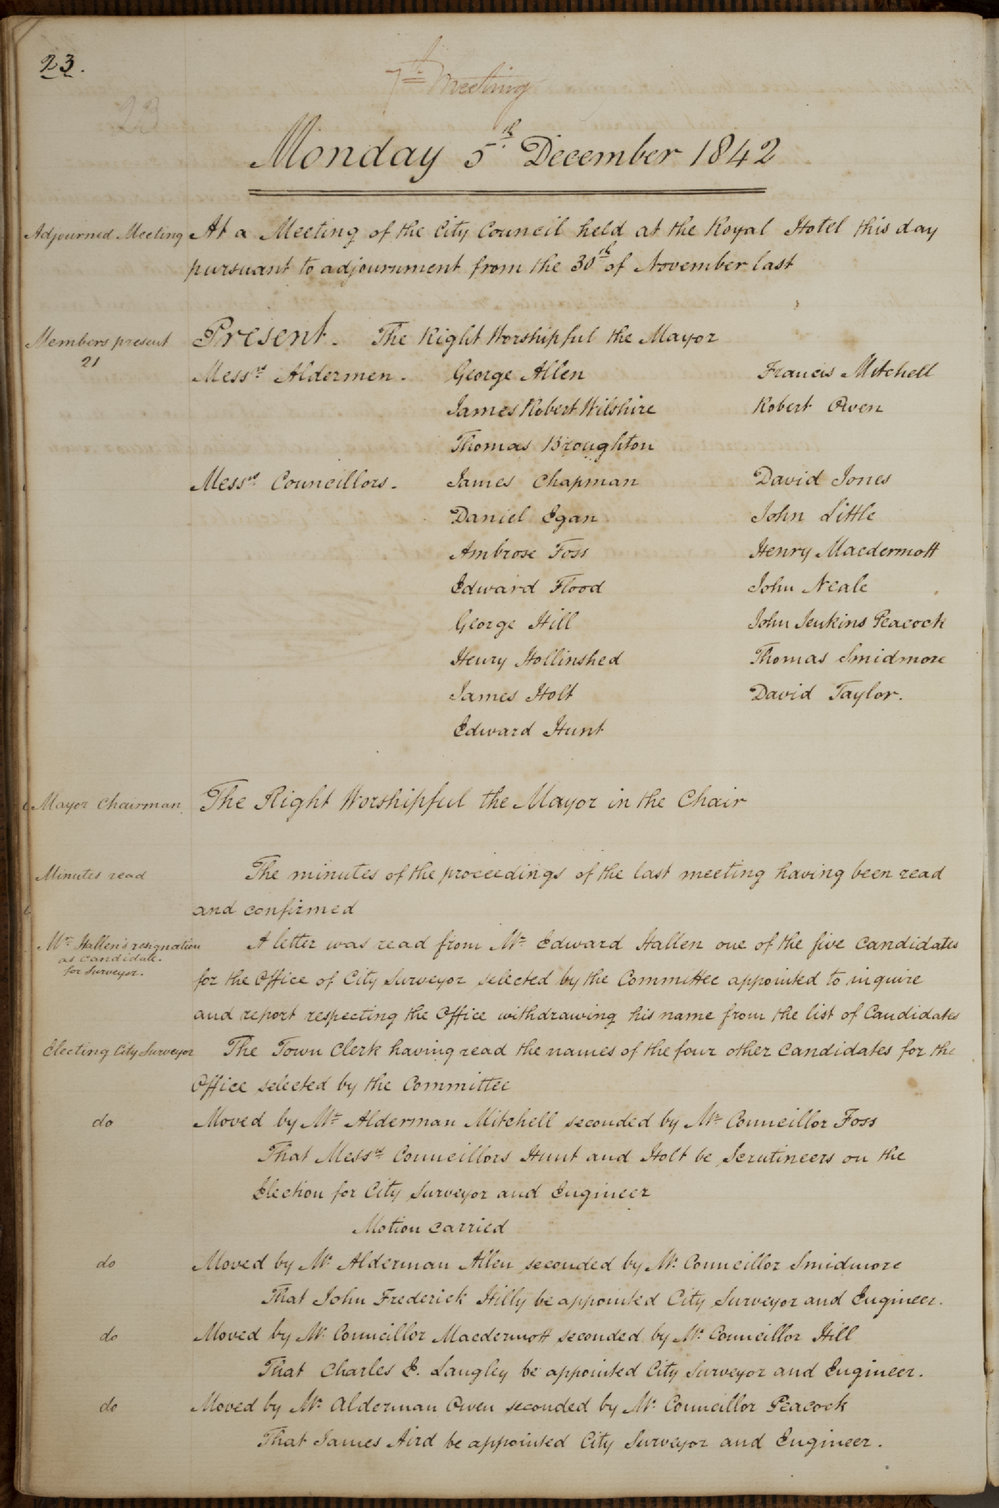 23.
7th Meeting
23
Monday 5th December 1842
Adjourned Meeting At a Meeting of the City Council held at the Royal Hotel this day
pursuant to adjournment from the 30th of November last
Members present Present. The Right Worshipful the Mayor
21
Messrs Aldermen. George Allen Francis Mitchell
James Robert Wilshire Robert Owen
Thomas Broughton
Messrs Councillors. James Chapman David Jones
Daniel Egan John Little
Ambrose Foss Henry Macdermott
Edward Flood John Neale
George Hill John Jenkins Peacock
Henry Hollinshed Thomas Smidmore
James Holt David Taylor.
Edward Hunt
Mayor Chairman The Right Worshipful the Mayor in the Chair
Minutes read The minutes of the proceedings of the last meeting having been read
and confirmed
Mr Hallen's resignation A letter was read from Mr Edward Hallen one of the five Candidates
as Candidate
for Surveyor. for the Office of City Surveyor selected by the Committee appointed to inquire
and report respecting the Office withdrawing his name from the list of Candidates
Electing City Surveyor The Town Clerk having read the names of the four other Candidates for the
Office selected by the Committee
do Moved by Mr Alderman Mitchell seconded by Mr Councillor Foss
That Messrs Councillors Hunt and Holt be Scrutineers on the
Election for City Surveyor and Engineer
Motion carried
do Moved by Mr Alderman Allen seconded by Mr Councillor Smidmore
That John Frederick Hilly be appointed City Surveyor and Engineer.
do Moved by Mr Councillor Macdermott seconded by Mr Councillor Hill
That Charles E. Langley be appointed City Surveyor and Engineer.
do Moved by Mr Alderman Owen seconded by Mr Councillor Peacock
That James Aird be appointed City Surveyor and Engineer.